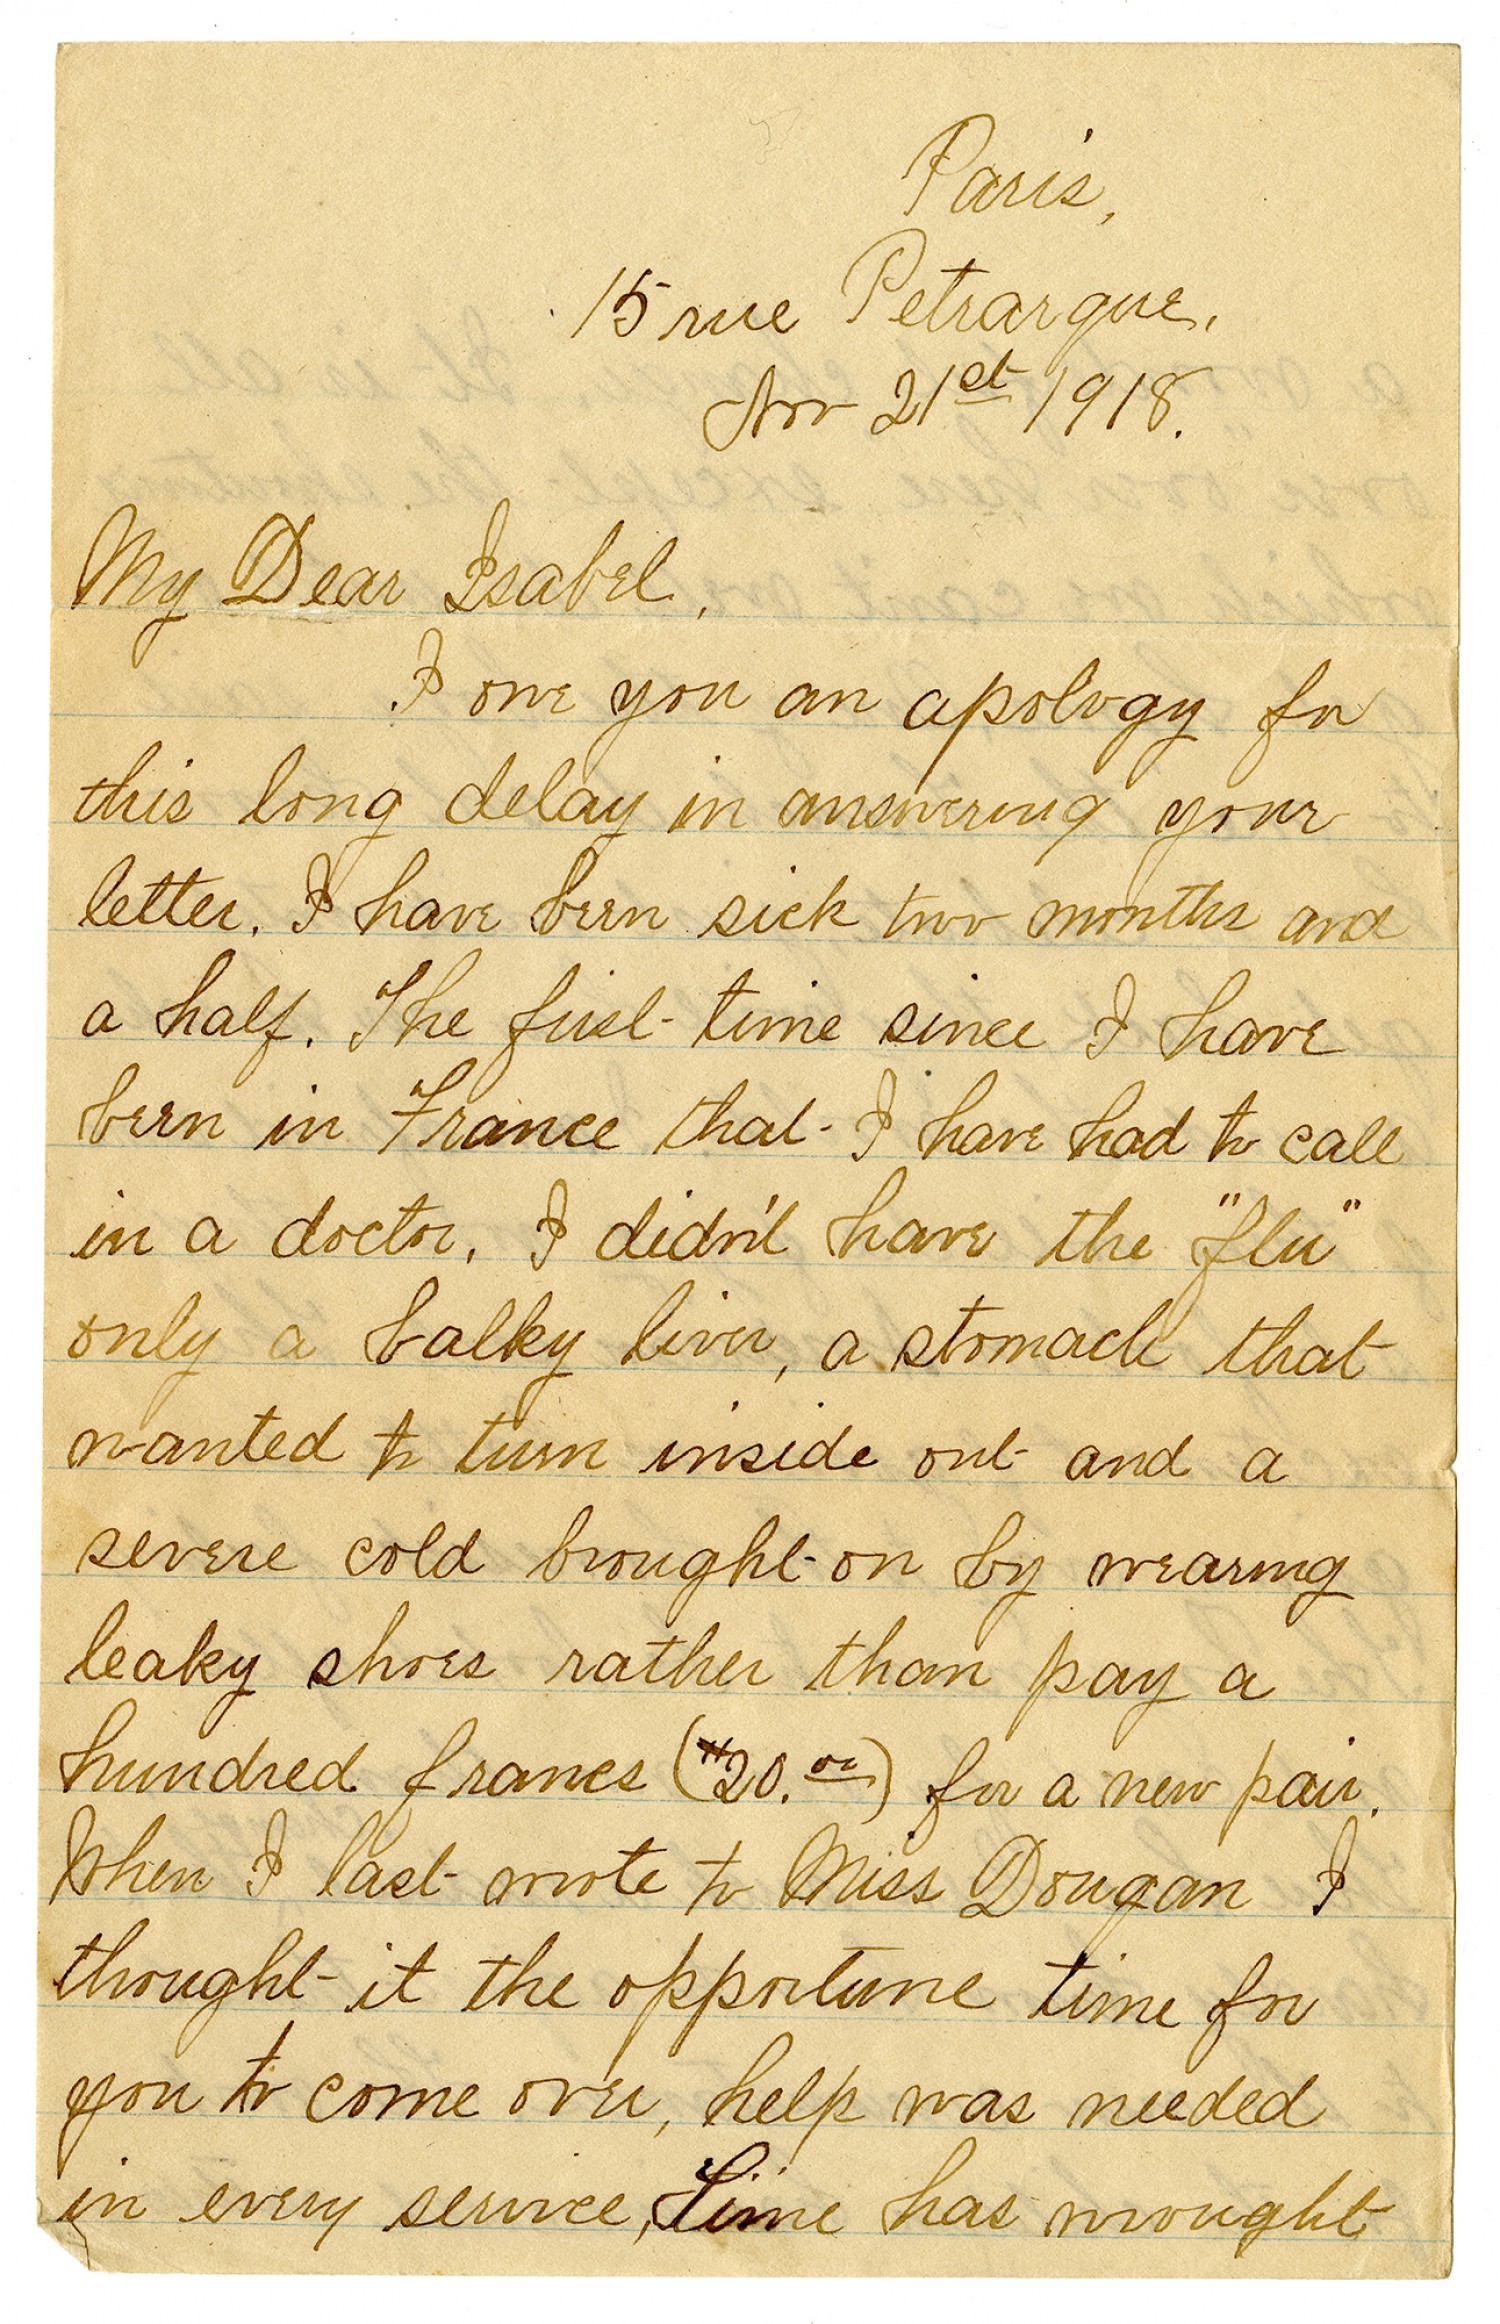 Paris,
15 rue Petrarque,
Nov 21st 1918.
My Dear Isabel,
I owe you an apology for
this long delay in answering your
letter. I have been sick two months and
a half. The first time since I have
been in France that I have had to call
in a doctor. I didn't have the "flu"
only a balky liver, a stomach that
wanted to turn inside out and a
severe cold brought on by wearing
leaky shoes rather than pay a
hundred francs ($20.00) for a new pair.
When I last wrote to Miss Dougan I
thought it the opportune time for
you to come over, help was needed
in every service, Time has wrought